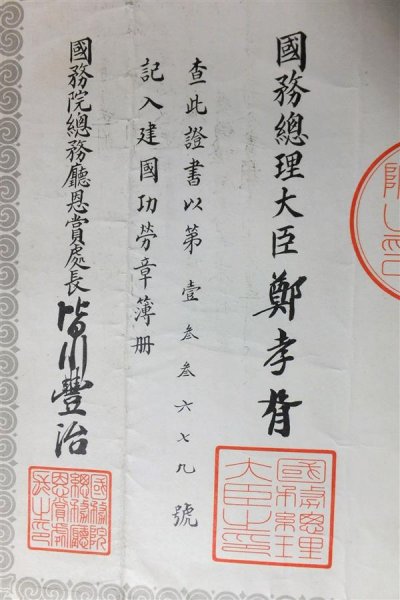 國務總理大臣 鄭孝胥
國務總理
大臣之印
查此證書以第壹叁叁六七九號
記入建國功勞章簿册
國務院總務廳恩賞處長 皆川豐治
國務院
總務廳
恩賞處
長之印